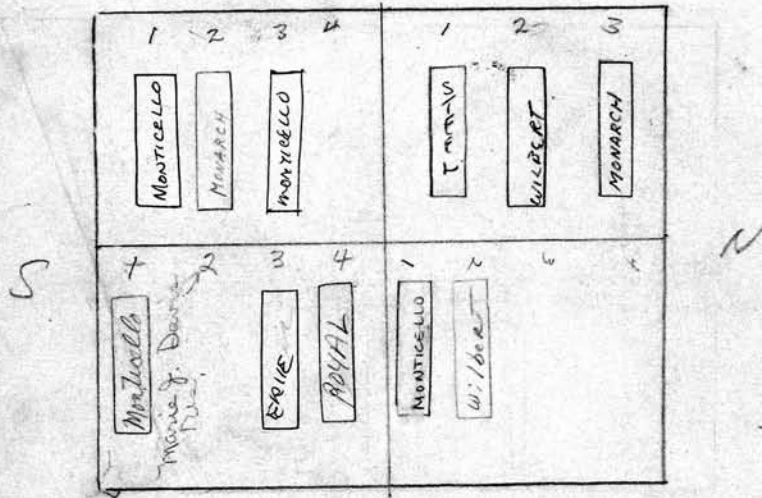 1 2 3 4
MONTICELLO
MONARCH
MONTICELLO
1 2 3
WILBERT
MONARCH
S
N
1 2 3 4
Monticello
Marie J.
ERIE
ROYAL
1 2
MONTICELLO
Wilbert